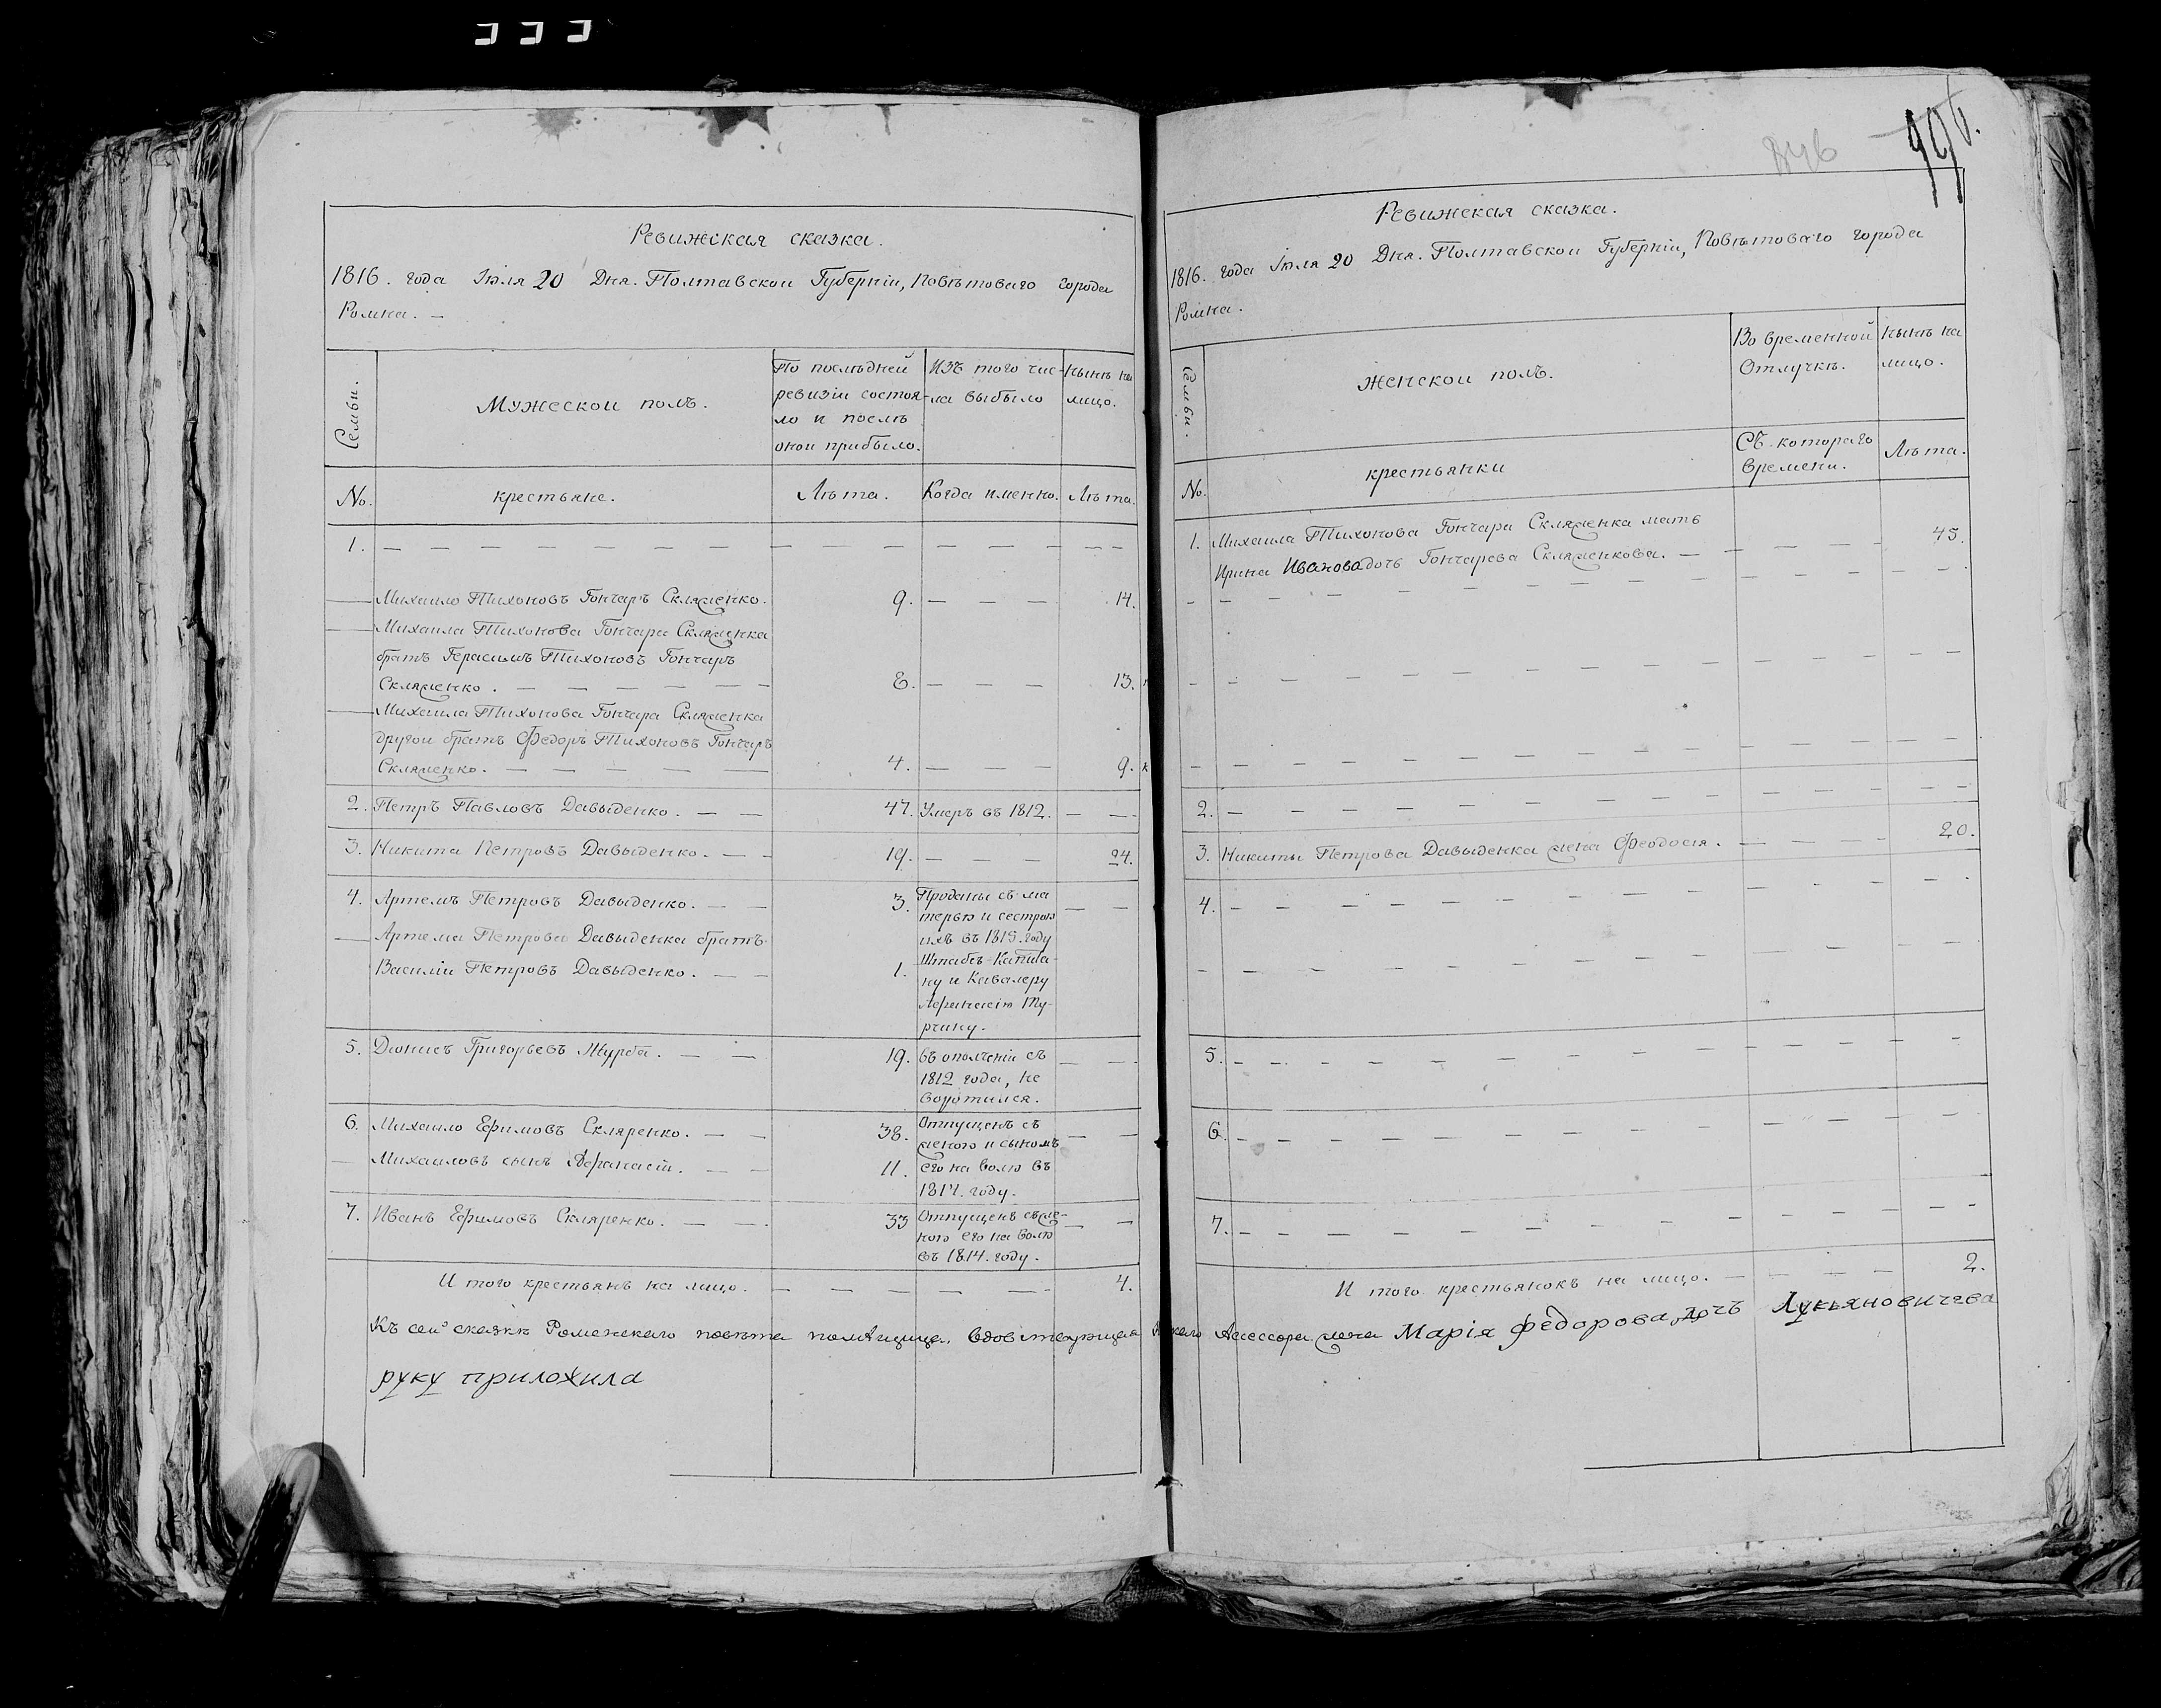 Ревижская сказка.
1816. года Іюля 20 Дня. Полтавской Губерніи, Повѣтоваго города
Ромна. —
Семьи.
Мужеской полъ.
По послѣдней
ревизіи состоя-
ло и послѣ
оной прибыло.
Изъ того чис-
ла выбыло
Нынѣ на
лицо.
No.
крестьяне.
Лѣта.
Когда именно.
Лѣта.
1. — — — — — — — — — — — — — —
Михайло Тихоновъ Гончаръ Скляренко. 9. — — — 14.
Михаила Тихонова Гончара Скляренка
братъ Герасимъ Тихоновъ Гончаръ
Скляренко. — — — — — 8. — — — 13.
Михаила Тихонова Гончара Скляренка
другой братъ Федоръ Тихоновъ Гончаръ
Скляренко. — — — — 4. — — — 9.
2. Петръ Павловъ Давыденко. — — 47. Умеръ въ 1812. — —
3. Никита Петровъ Давыденко. — — 19. — — — 24.
4. Артемъ Петровъ Давыденко. — — 3. — —
Артема Петрова Давыденка братъ
Василій Петровъ Давыденко. — — 1.
Проданы съ ма
терью и сестрою
ихъ въ 1815. году
Штабсъ-Капита-
ну и Кавалеру
Афанасію Ту-
рчину.
5. Діонисъ Григорьевъ Журба. — — 19. въ ополченіи съ — —
1812 года, не
воротился.
6. Михайло Ефимовъ Скляренко. — — 38. Отпущенъ съ — —
женою и сыномъ
Михаиловъ сынъ Афанасій. — — 11. его на волю въ
1814. году.
7. Иванъ Ефимовъ Скляренко. — — 33 Отпущенъ съ же- — —
ною его на волю
въ 1814. году.
И того крестьянъ на лицо. — — — — — 4.
846
Ревижская сказка.
1816. года Іюля 20 Дня. Полтавской Губерніи, Повѣтоваго города
Ромна.
Семьи.
Женской полъ.
Во временной
Отлучкѣ.
Нынѣ на
лицо.
No.
крестьянки
Съ котораго
времени.
Лѣта.
1. Михаила Тихонова Гончара Скляренка мать
Ирина Ивановадочь Гончарева Скляренкова. — — — — 45.
2. — — — — — — — — — —
3. Никиты Петрова Давыденка жена Феодосія. — — — — 20.
4. — — — — — — — — — —
5. — — — — — — — — — —
6. — — — — — — — — — —
7. — — — — — — — — — —
И того крестьянокъ на лицо. — — — — 2.
Къ сей сказкѣ Роменскаго повѣта помѣщица, вдовствующая Асессора жена Марія Федорова дочъ Лукьяновичева
руку приложила